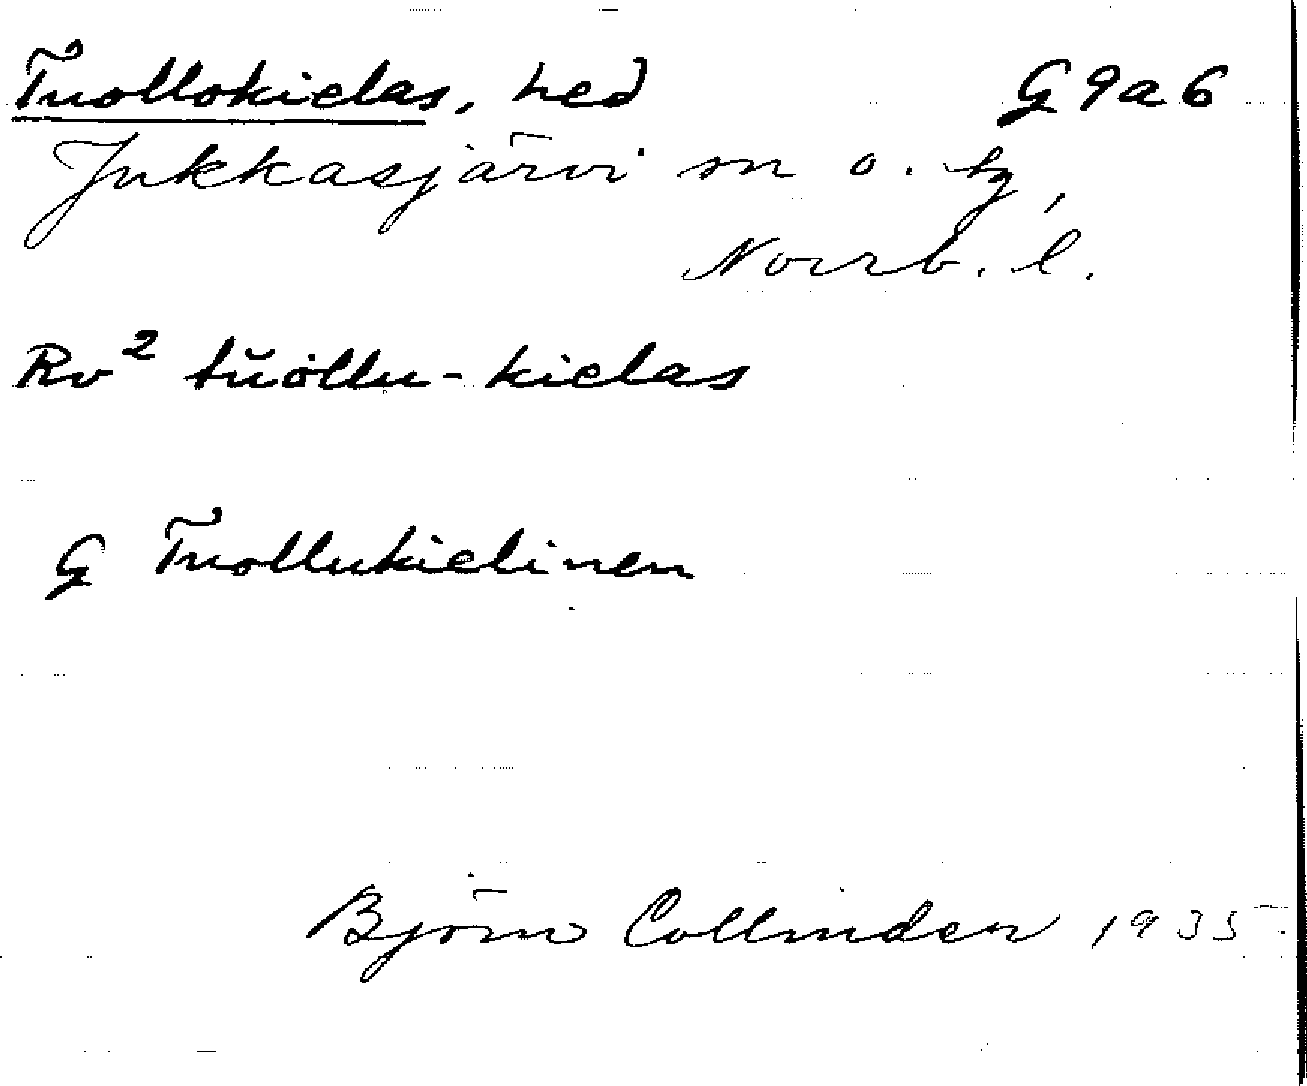 Tuollokielas, hed G9a6
Jukkasjärvi sn o. tg,
Norrb. l.
Rv² tŭȯllu-kielas
G Tuollukielinen
Björn Collinder 1935